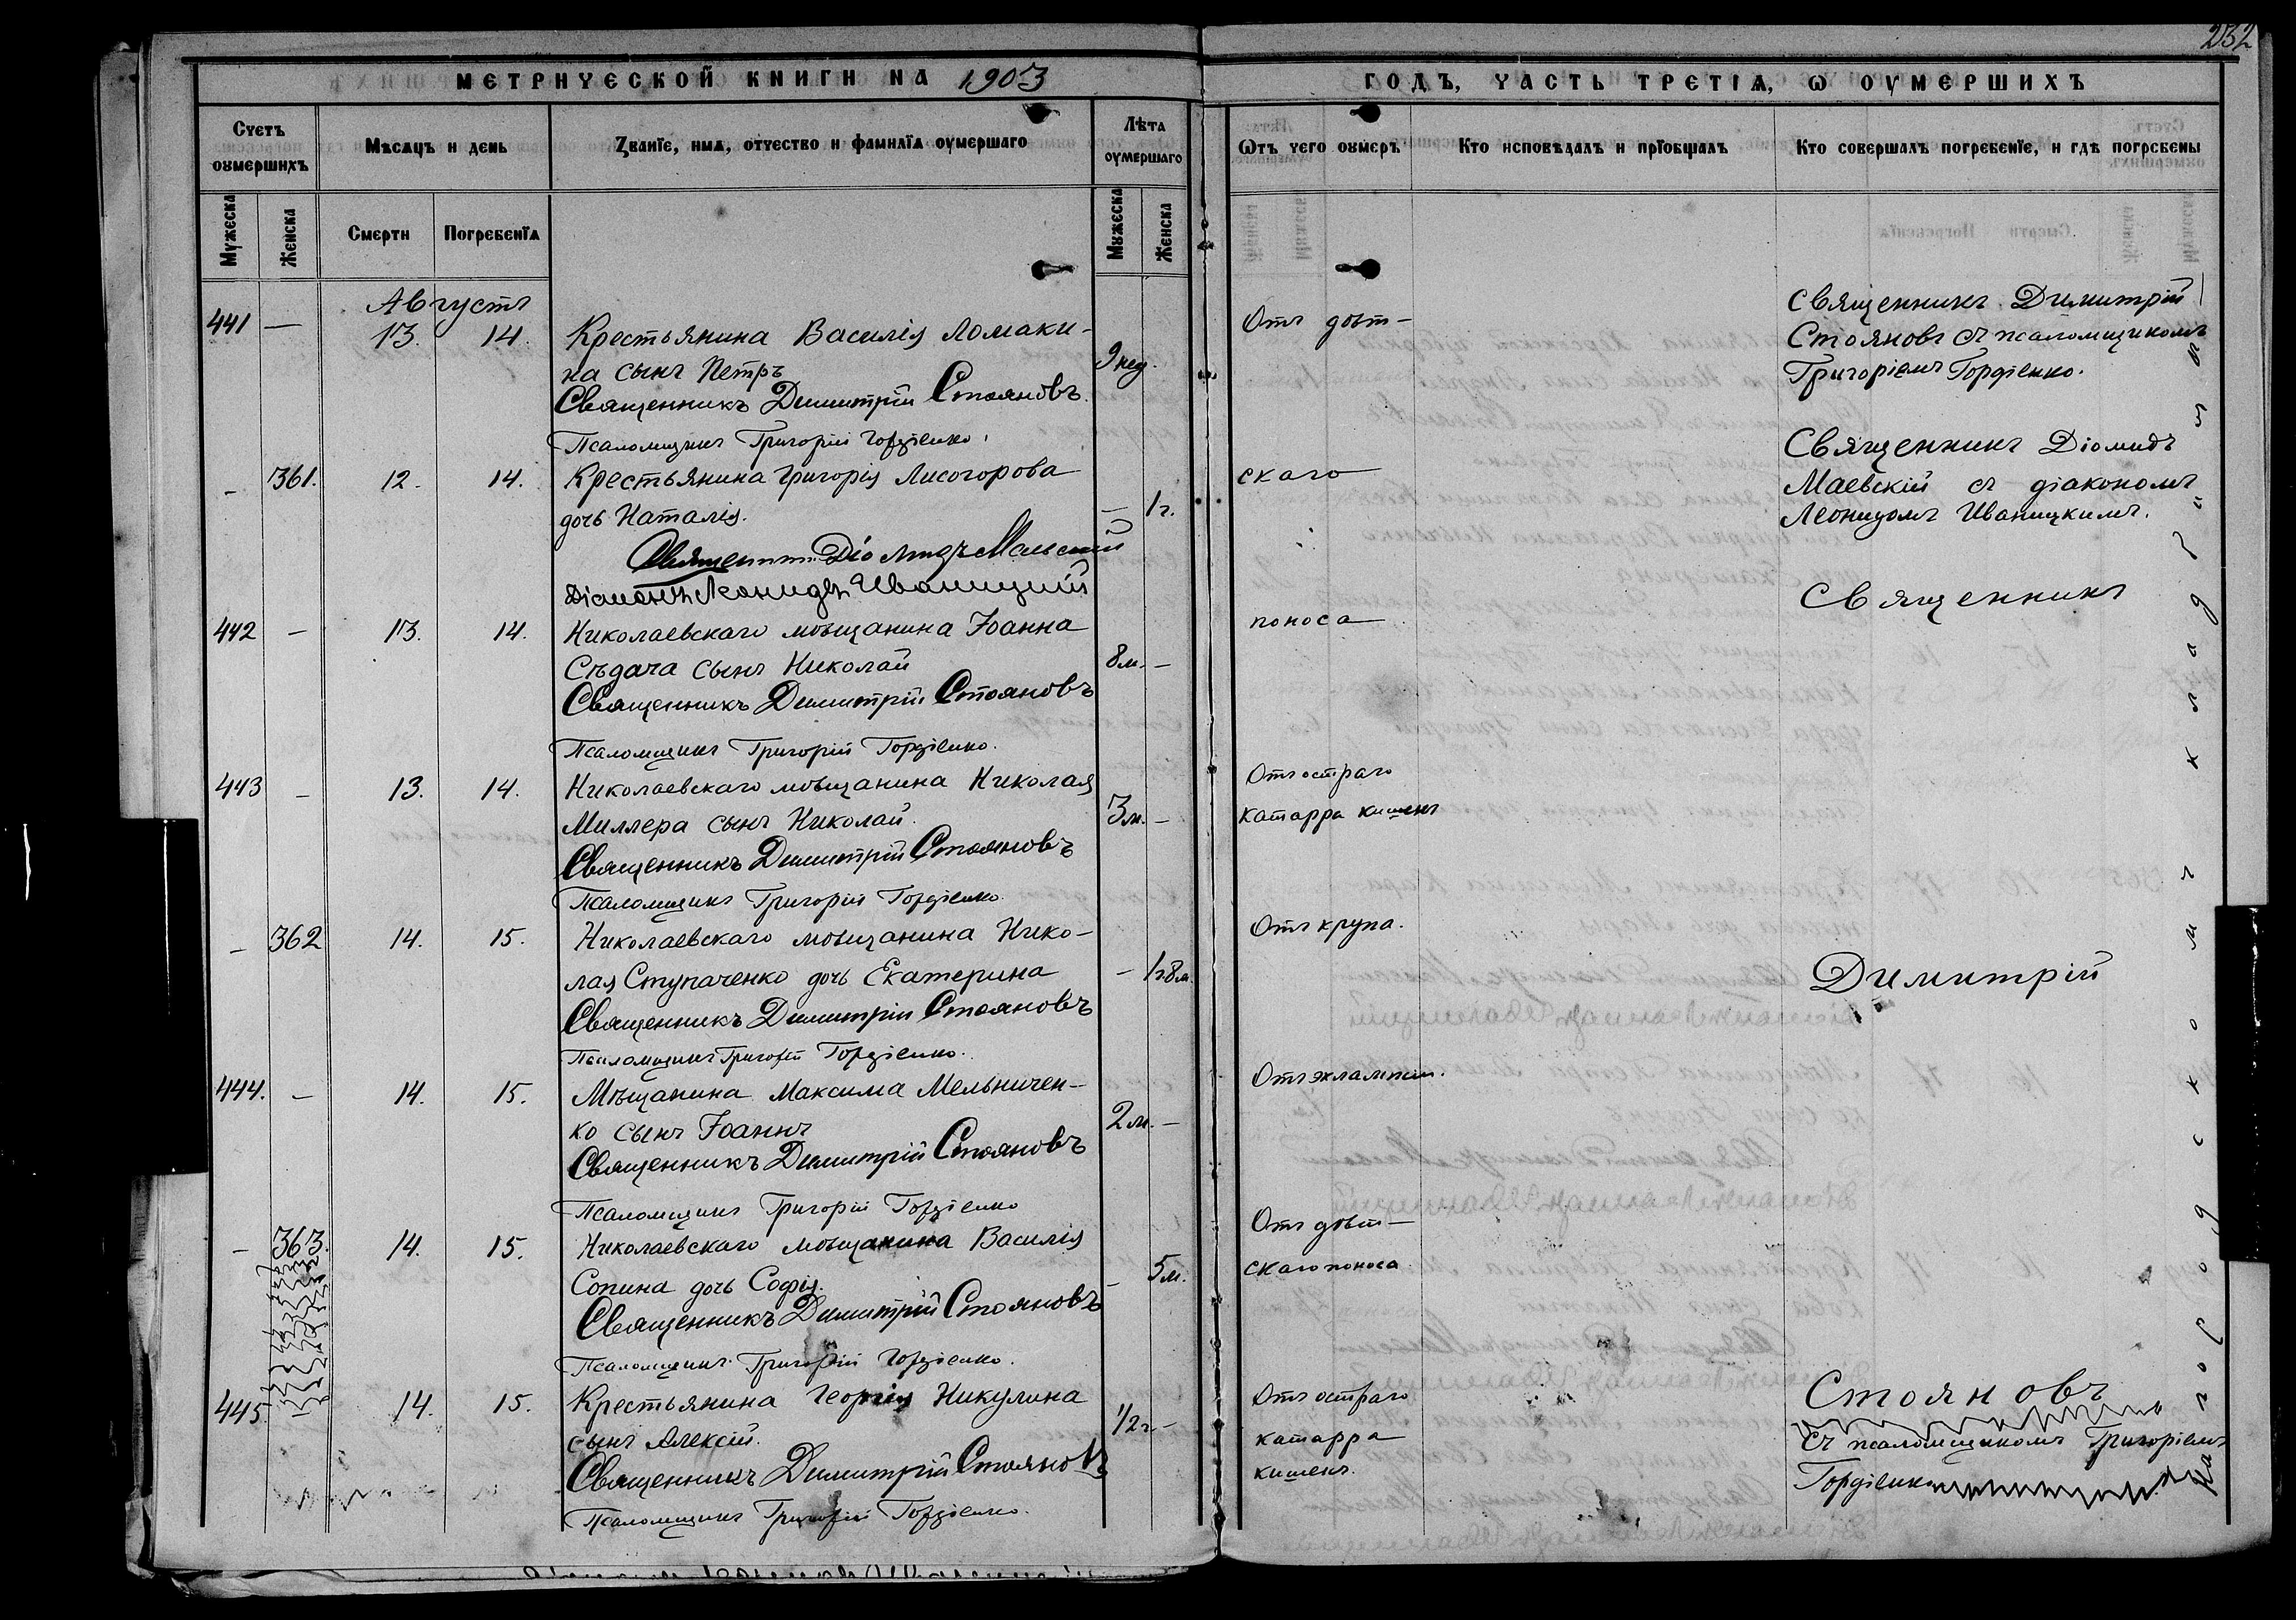 232
МЕТРИЧЕСКОЙ КНИГИ НА 1903
ГОДЪ, ЧАСТЬ ТРЕТІѦ, Ѡ ОУМЕРШИХЪ
Счетъ оумершихъ
Мѣсяцъ и день
Званіе, имя, отчество и фамиліа оумершаго
Лѣта оумершаго
Ѿтъ чего оумеръ
Кто исповѣдалъ и пріобщалъ
Кто совершалъ погребеніе, и гдѣ погребены
Мужеска
Женска
Смерти
Погребенія
Мужеска
Женска
Августъ
441 — 13. 14. Крестьянина Василія Ломаки-
на сынъ Петръ 9 нед.
Священникъ Димитрій Стояновъ.
Псаломщикъ Григорій Гордіенко.
– 361. 12. 14. Крестьянина Григорія Лисогорова
дочь Наталія. — 1 г.
Священникъ Діомидъ Маевскій
Діаконъ Леонидъ Иваницкій
442 – 13. 14. Николаевскаго мѣщанина Іоанна
Сѣдача сынъ Николай 8 м. –
Священникъ Димитрій Стояновъ
Псаломщикъ Григорій Гордіенко.
443 – 13. 14. Николаевскаго мѣщанина Николая
Миллера сынъ Николай. 3 м. –
Священникъ Димитрій Стояновъ
Псаломщикъ Григорій Гордіенко.
– 362 14. 15. Николаевскаго мѣщанина Нико-
лая Ступаченко дочь Екатерина – 1 г. 8 м.
Священникъ Димитрій Стояновъ
Псаломщикъ Григорій Гордіенко.
444. – 14. 15. Мѣщанина Максима Мельничен-
ко сынъ Іоаннъ 2 м. –
Священникъ Димитрій Стояновъ
Псаломщикъ Григорій Гордіенко
– 363. 14. 15. Николаевскаго мѣщанина Василія
Сопина дочь Софія. – 5 м.
Священникъ Димитрій Стояновъ
Псаломщикъ Григорій Гордіенко.
445. – 14. 15. Крестьянина Георгія Никулина
сынъ Алексій. 1/2 г. –
Священникъ Димитрій Стояновъ
Псаломщикъ Григорій Гордіенко.
Отъ дѣт-
скаго
поноса
Отъ остраго
катарра кишекъ
Отъ крупа.
Отъ эклампсіи.
Отъ дѣт-
скаго поноса
Отъ остраго
катарра
кишекъ.
Священникъ Димитрій
Стояновъ съ псаломщикомъ
Григоріемъ Гордіенко.
Священникъ Діомидъ
Маевскій съ діакономъ
Леонидомъ Иваницкимъ.
Священникъ
Димитрій
Стояновъ
съ псаломщикомъ Григоріемъ
Гордіенко
На городскомъ кладбищѣ